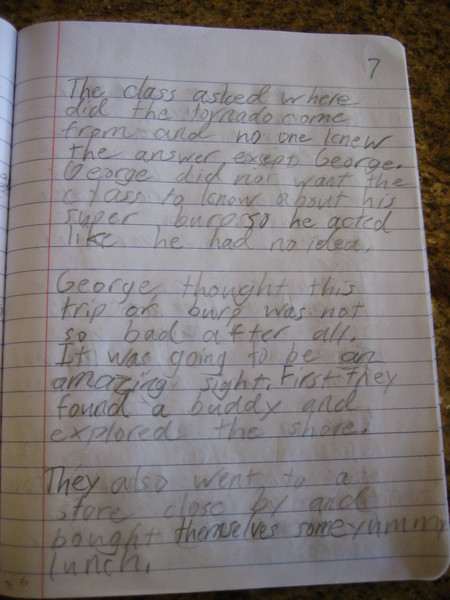 7
The class asked where
did the tornado come
from and no one knew
the answer except George.
George did not want the
class to know about his
super burps so he acted
like he had no idea.
George thought this
trip or burp was not
so bad after all.
It was going to be an
amazing sight. First they
found a buddy and
explored the shore.
They also went to a
store close by and
bought themselves some yummy
lunch.